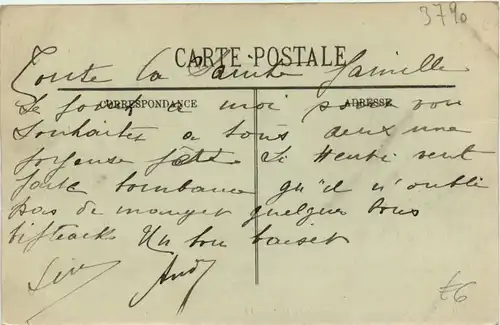 3790
CARTE POSTALE
Toute la Sainte famille
CORRESPONDANCE
ADRESSE
Se joint a moi pour vou
Souhaiter a tous deux une
joyeuse fête Si Henri veut
faire bombance qu'il n'oublie
pas de manger quelques bons
bifteack Un bon baiser
£6